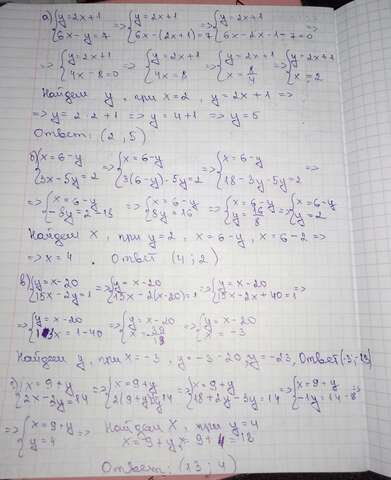 а) {y=2x+1 {6x-y=7 => {y=2x+1 {6x-(2x+1)=7 => {y=2x+1 {6x-2x-1-7=0 =>
=> {y=2x+1 {4x-8=0 => {y=2x+1 {4x=8 => {y=2x+1 {x=8/4 => {y=2x+1 {x=2
Найдем y, при x=2, y=2x+1 =>
=> y=2·2+1 => y=4+1 => y=5
Ответ: (2,5)
б) {x=6-y {3x-5y=2 => {x=6-y {3(6-y)-5y=2 => {x=6-y {18-3y-5y=2 =>
=> {x=6-y {-8y=2-18 => {x=6-y {8y=16 => {x=6-y {y=16/8 => {x=6-y {y=2
Найдем x, при y=2, x=6-y, x=6-2 =>
=> x=4. Ответ (4;2)
в) {y=x-20 {15x-2y=1 => {y=x-20 {15x-2(x-20)=1 => {y=x-20 {15x-2x+40=1 =>
=> {y=x-20 {13x=1-40 => {y=x-20 {x=-39/13 => {y=x-20 {x=-3
Найдем y, при x=-3, y=-3-20, y=-23, Ответ (-3;-23)
{x=9+y => {x=9+y => {x=9+y => {x=9+y =>
=> {x=9+y {y=4 => Найдем x, при y=4
Ответ: (13;4)